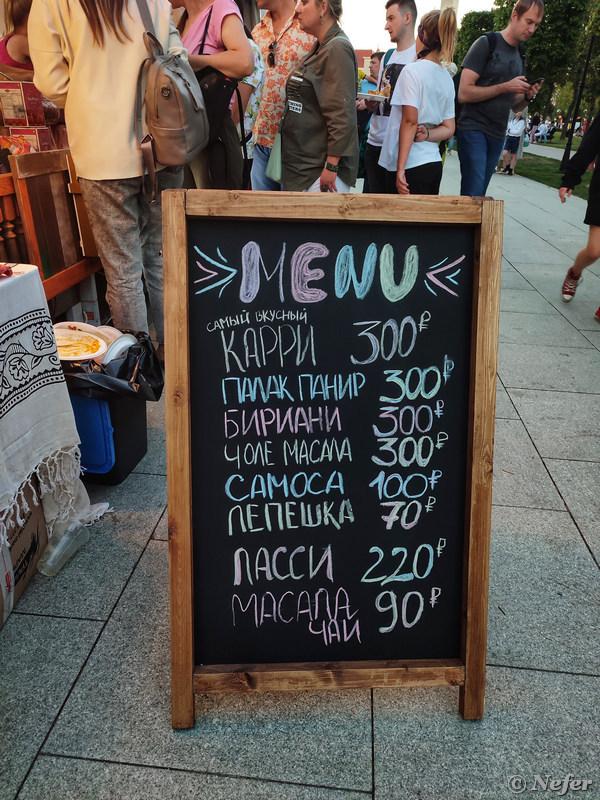 MENU
самый вкусный
КАРРИ 300₽
ПАЛАК ПАНИР 300₽
БИРИАНИ 300₽
ЧОЛЕ МАСАЛА 300₽
САМОСА 100₽
ЛЕПЕШКА 70₽
ЛАССИ 220₽
МАСАЛА 90₽
ЧАЙ
© Nefer